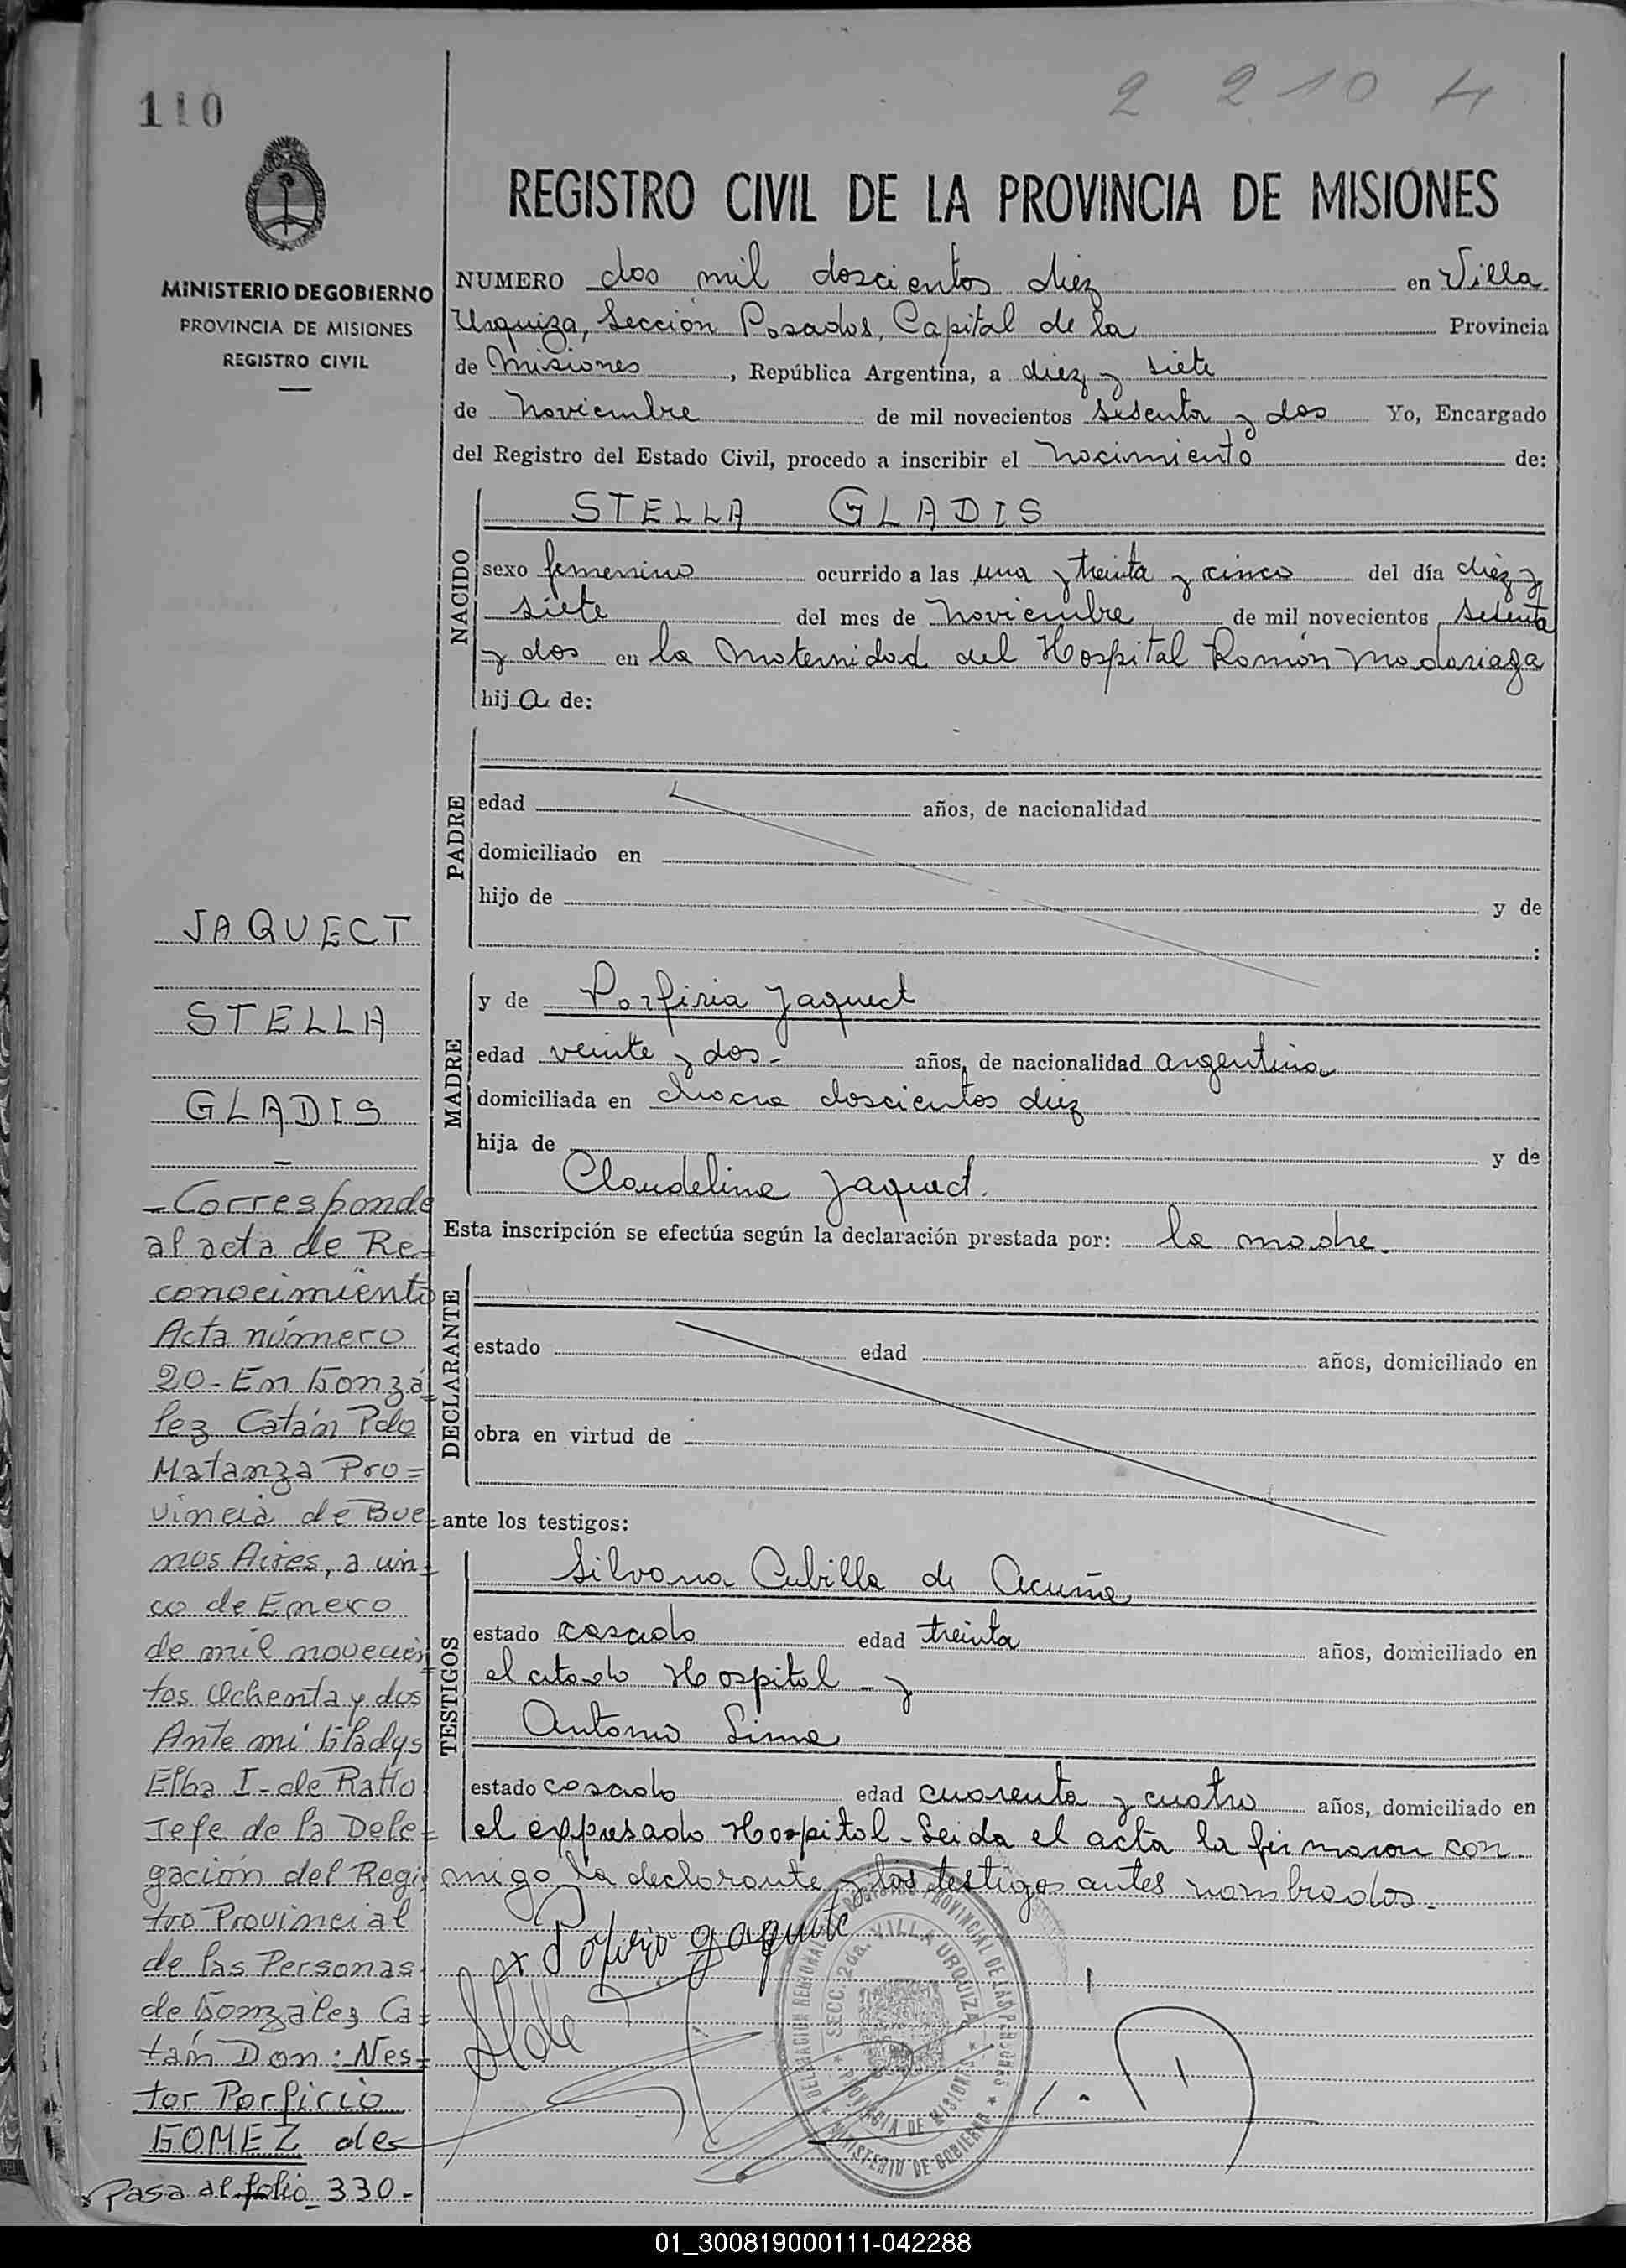 110
2 2 1 0 4
MINISTERIO DE GOBIERNO
PROVINCIA DE MISIONES
REGISTRO CIVIL
REGISTRO CIVIL DE LA PROVINCIA DE MISIONES
NUMERO dos mil doscientos diez en Villa
Urquiza, Sección Posadas, Capital de la Provincia
de Misiones, República Argentina, a diez y siete
de Noviembre de mil novecientos sesenta y dos Yo, Encargado
del Registro del Estado Civil, procedo a inscribir el nacimiento de:
NACIDO
STELLA GLADIS
sexo femenino ocurrido a las una y treinta y cinco del día diez y
siete del mes de Noviembre de mil novecientos sesenta
y dos en la Maternidad del Hospital Ramón Madariaga
hija de:
PADRE
edad años, de nacionalidad
domiciliado en
hijo de y de
:
MADRE
y de Porfiria Jaquect
edad veinte y dos.- años, de nacionalidad argentina
domiciliada en chacra doscientos diez
hija de y de
Claudelina Jaquect.
Esta inscripción se efectúa según la declaración prestada por: la madre.
DECLARANTE
estado edad años, domiciliado en
obra en virtud de
ante los testigos:
TESTIGOS
Silvana Cubilla de Acuña
estado casada edad treinta años, domiciliado en
el citado Hospital - y
Antonio Lima
estado casado edad cuarenta y cuatro años, domiciliado en
el expresado Hospital - Leida el acta la firmaron con
migo la declarante y los testigos antes nombrados.-
JAQUECT
STELLA
GLADIS
-
- Corresponde
al acta de Re-
conocimiento
Acta número
20 - En Gonzá=
lez Catán Pdo
Matanza Pro=
vincia de Bue=
nos Aires, a cin=
co de Enero
de mil novecien=
tos ochenta y dos
Ante mí Gladys
Elba I - de Ratto
Jefe de la Dele=
gación del Regis
tro Provincial
de las Personas
de Gonzáles Ca=
tán Don: Nes=
tor Porficio
GOMEZ de
Pasa al folio 330.-
x Pofiria Jaquite
DELEGACION REGIONAL REGISTRO PROVINCIAL DE LAS PERSONAS
SECC. 2da. VILLA URQUIZA
PROVINCIA DE MISIONES
MINISTERIO DE GOBIERNO
01_300819000111-042288